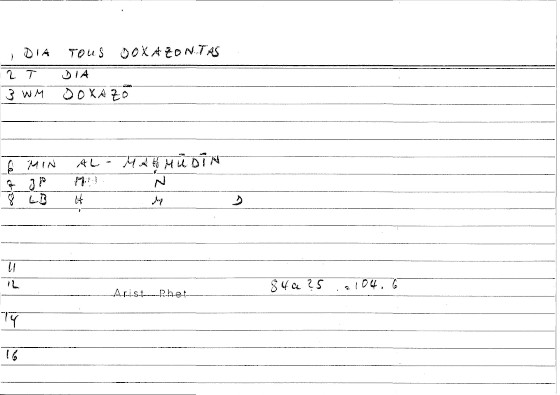 1 DIA TOUS DOXAZONTAS
2 T DIA
3 WM DOXAZŌ
6 MIN AL-MAḤMŪDĪN
7 JP N
8 LB Ḥ M D
11
12 Arist Rhet 84a25 104.6
14
16